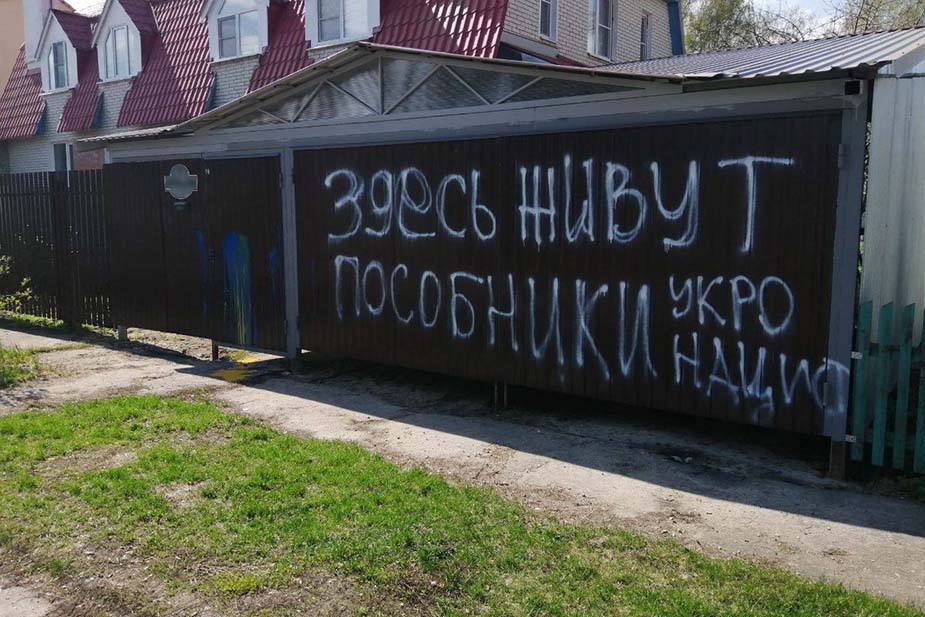 Здесь живут
пособники укро
нацист